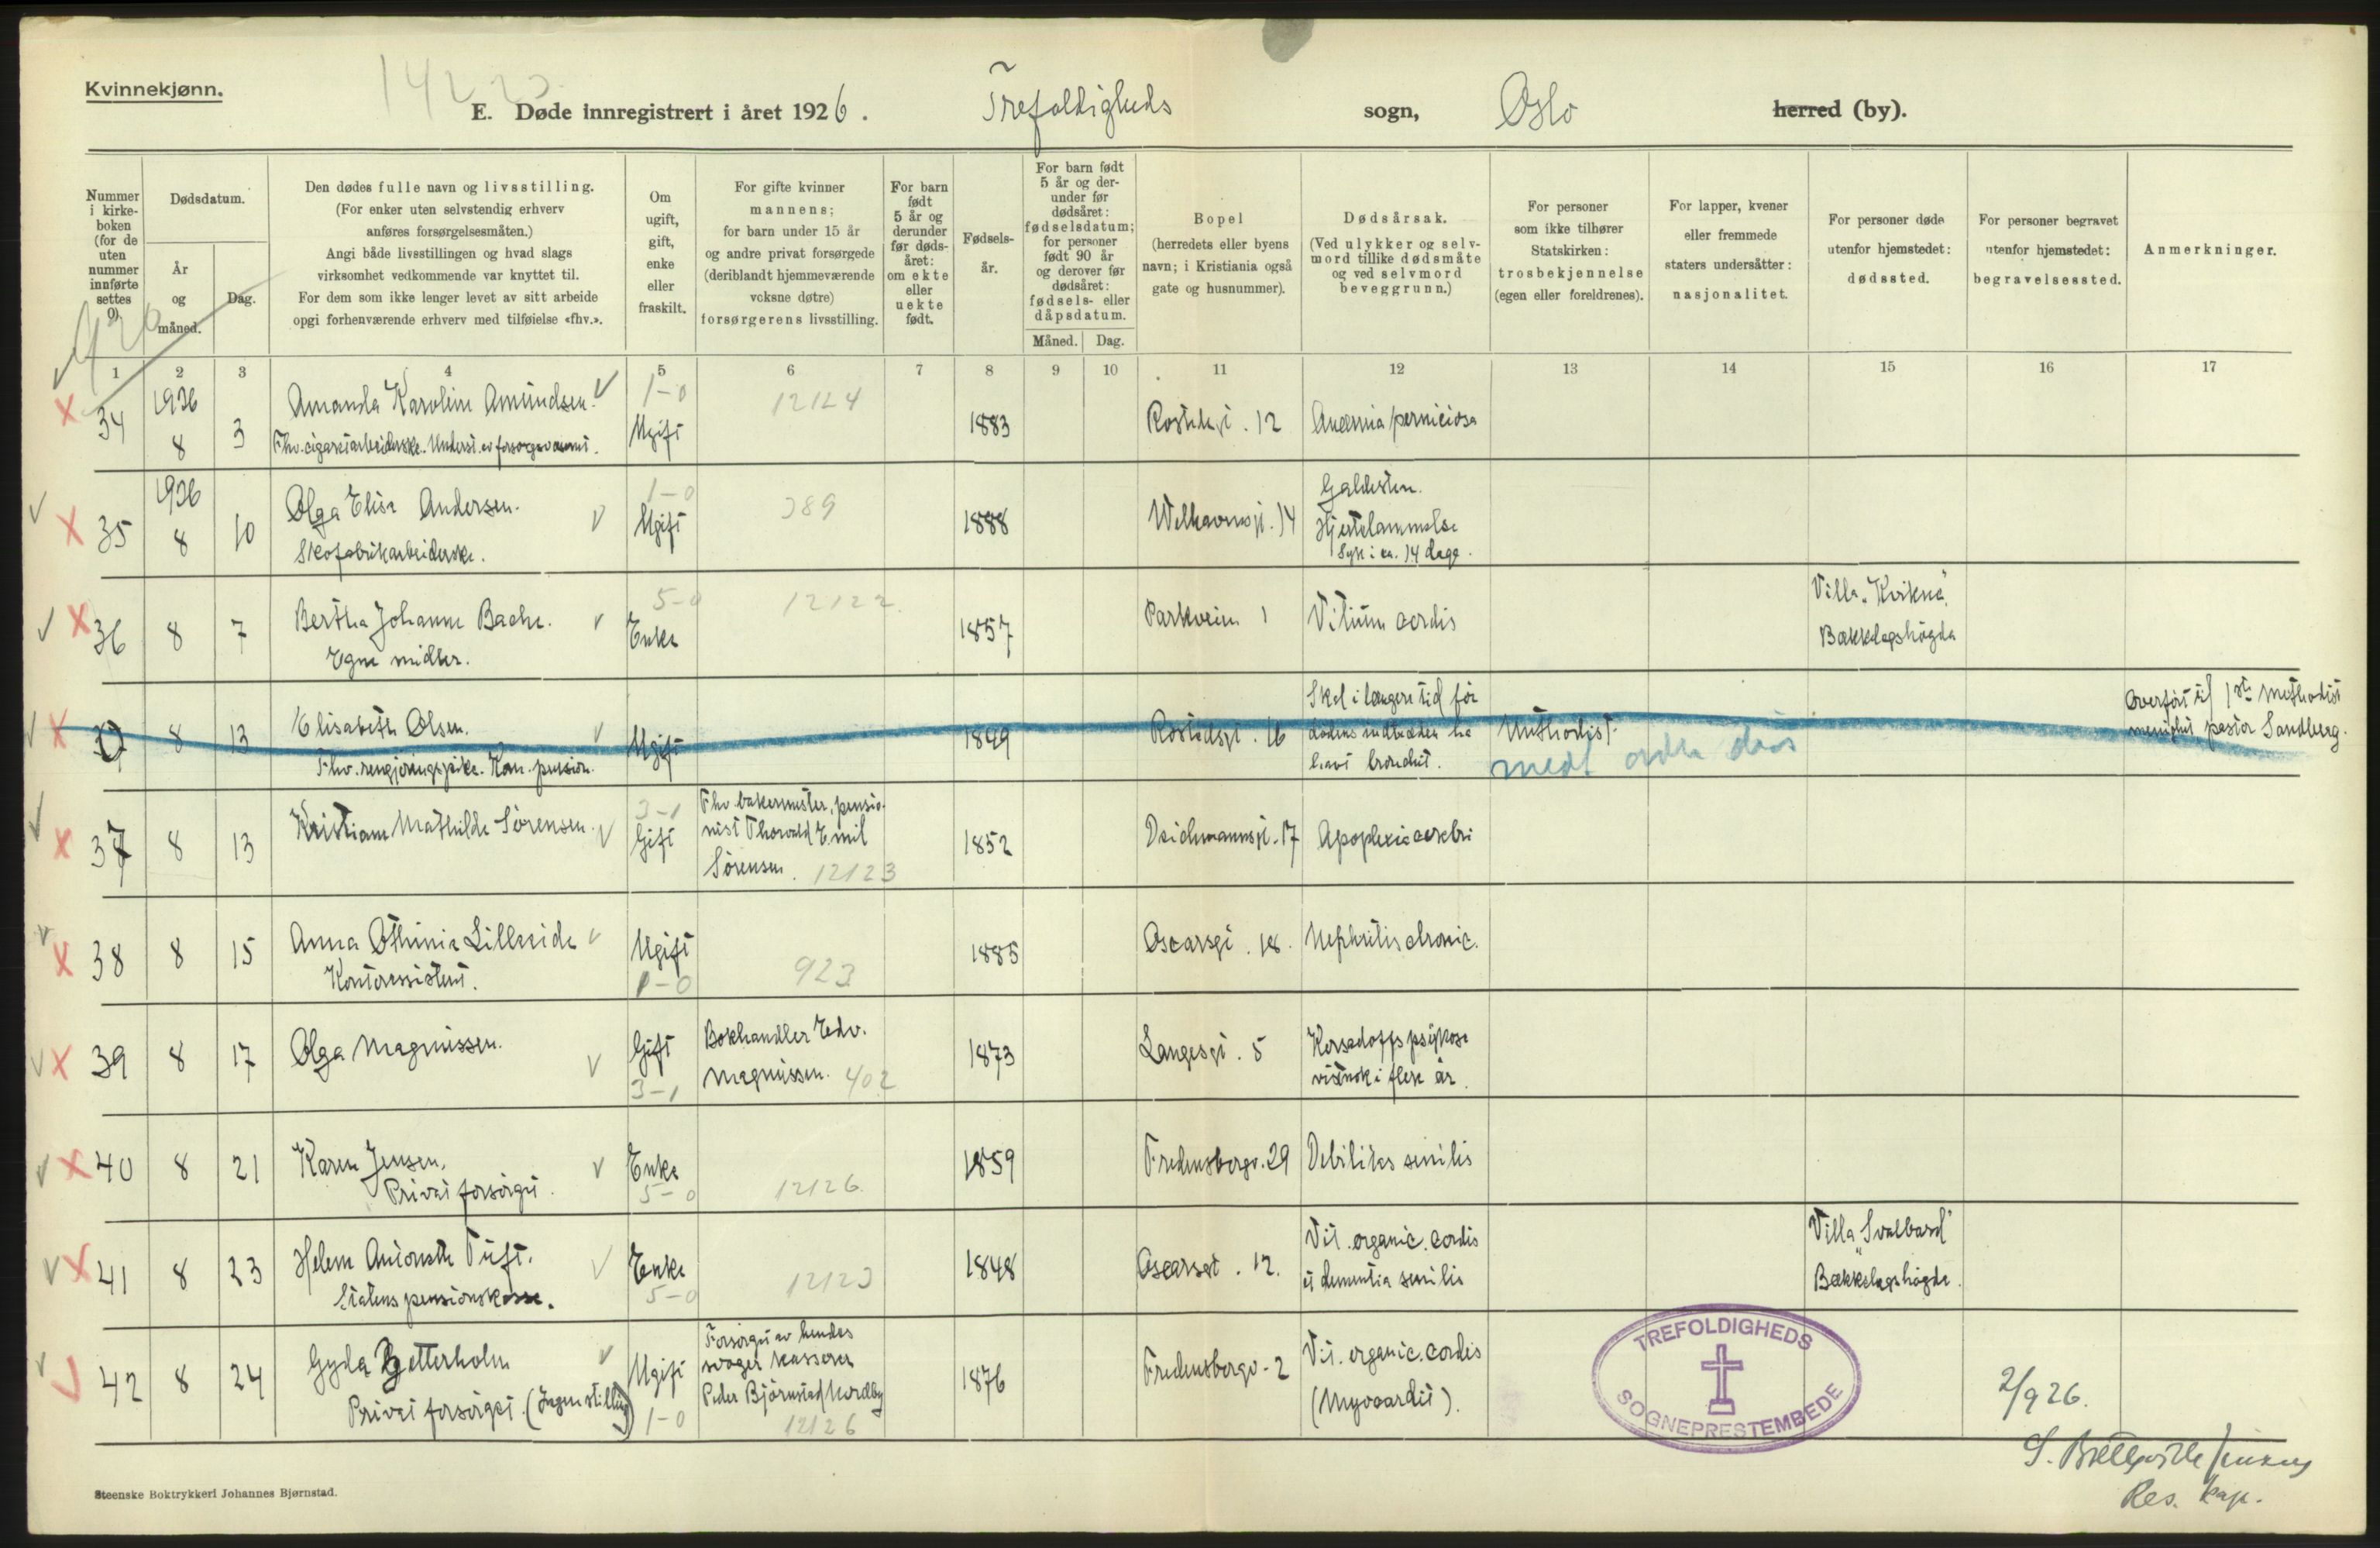 Kvinnekjønn.
E. Døde innregistrert i året 1926. Trefoldigheds sogn, Oslo herred (by).
Nummer i kirkeboken (for de uten nummer innførte settes 0).
Dødsdatum.
År og måned.
Dag.
Den dødes fulle navn og livsstilling.
(For enker uten selvstendig erhverv
anføres forsørgelsesmåten.)
Angi både livsstillingen og hvad slags
virksomhet vedkommende var knyttet til.
For dem som ikke lenger levet av sitt arbeide
opgi forhenværende erhverv med tilføielse «fhv.».
Om
ugift,
gift,
enke
eller
fraskilt.
For gifte kvinner
mannens;
for barn under 15 år
og andre privat forsørgede
(deriblandt hjemmeværende
voksne døtre)
forsørgerens livsstilling.
For barn
født
5 år og
derunder
før døds-
året:
om ekte
eller
uekte
født.
Fødsels-
år.
For barn født
5 år og der-
under før
dødsåret:
fødselsdatum;
for personer
født 90 år
og derover før
dødsåret:
fødsels- eller
dåpsdatum.
Måned. Dag.
Bopel
(herredets eller byens
navn; i Kristiania også
gate og husnummer).
Dødsårsak.
(Ved ulykker og selv-
mord tillike dødsmåte
og ved selvmord
beveggrunn.)
For personer
som ikke tilhører
Statskirken:
trosbekjennelse
(egen eller foreldrenes).
For lapper, kvener
eller fremmede
staters undersåtter:
nasjonalitet.
For personer døde
utenfor hjemstedet:
dødssted.
For personer begravet
utenfor hjemstedet:
begravelsessted.
Anmerkninger.
1 2 3 4 5 6 7 8 9 10 11 12 13 14 15 16 17
34 1926 8 3 Amanda Karoline Amundsen. 1-0 Ugift 12124 1883 12 Anæmia perniciosa
35 1926 8 10 Olga Elise Andersen.
Skofabrikarbeiderske.
1-0 Ugift 389 1888 Welhavensgt. 14 Galdesten.
Hjertelammelse
Syk i ca. 14 dage.
36 8 7 Bertha Johanne Bache.
Egne midler.
5-0 Enke 12122 1857 Parkveien 1 Vitium cordis
Villa "Kirkne"
Bækkelagshøgda
8 13 Elisabeth Olsen.
Fhv. rengjøringspike. Kom. pension.
Ugift 1849 16 Skal i længere tid før
dødens indtræden ha
havt bronchit.
Methodist.
Overført til 1ste Methodist
menighet pastor Sandberg.
37 8 13 Kristiane Mathilde Sørensen. 3-1 Gift
Fhv. bakermester, pensio-
nist Thorvald Emil
Sørensen. 12123
1852 Deichmannsgt. 17 Apoplexia cerebri
38 8 15 Anna Othinie Lilleeide
Kontorassistent.
Ugift 1-0 923 1885 Oscarsgt. 18. Nephritis chronic.
39 8 17 Olga Magnussen. Gift 3-1
Bokhandler Edv.
Magnussen. 402
1873 Langesgt. 5 Korsakoffs psykose
vistnok i flere år.
40 8 21 Karen Jensen.
Privat forsørget.
Enke 5-0 12126 1859 Fredensborgv. 29 Debilitas senilis
41 8 23 Helene Antonette Tuft.
Statens pensionskasse.
Enke 5-0 12123 1848 Oscarsgt. 12. Vit. organic. cordis
et dementia senilis
Villa "Svalbard"
Bækkelagshøgda.
42 8 24 Gyda Zetterholm
Privat forsørget. (Ingen stilling)
Ugift 1-0
Forsørget av hendes
svoger kasserer
Peder Bjørnstad Nordby
12126
1876 Fredensborgv. 2 Vit. organic. cordis
(Myocardit).
TREFOLDIGHEDS
SOGNEPRESTEMBEDE
2/9 26.
Res. kap.
Steenske Boktrykkeri Johannes Bjørnstad.